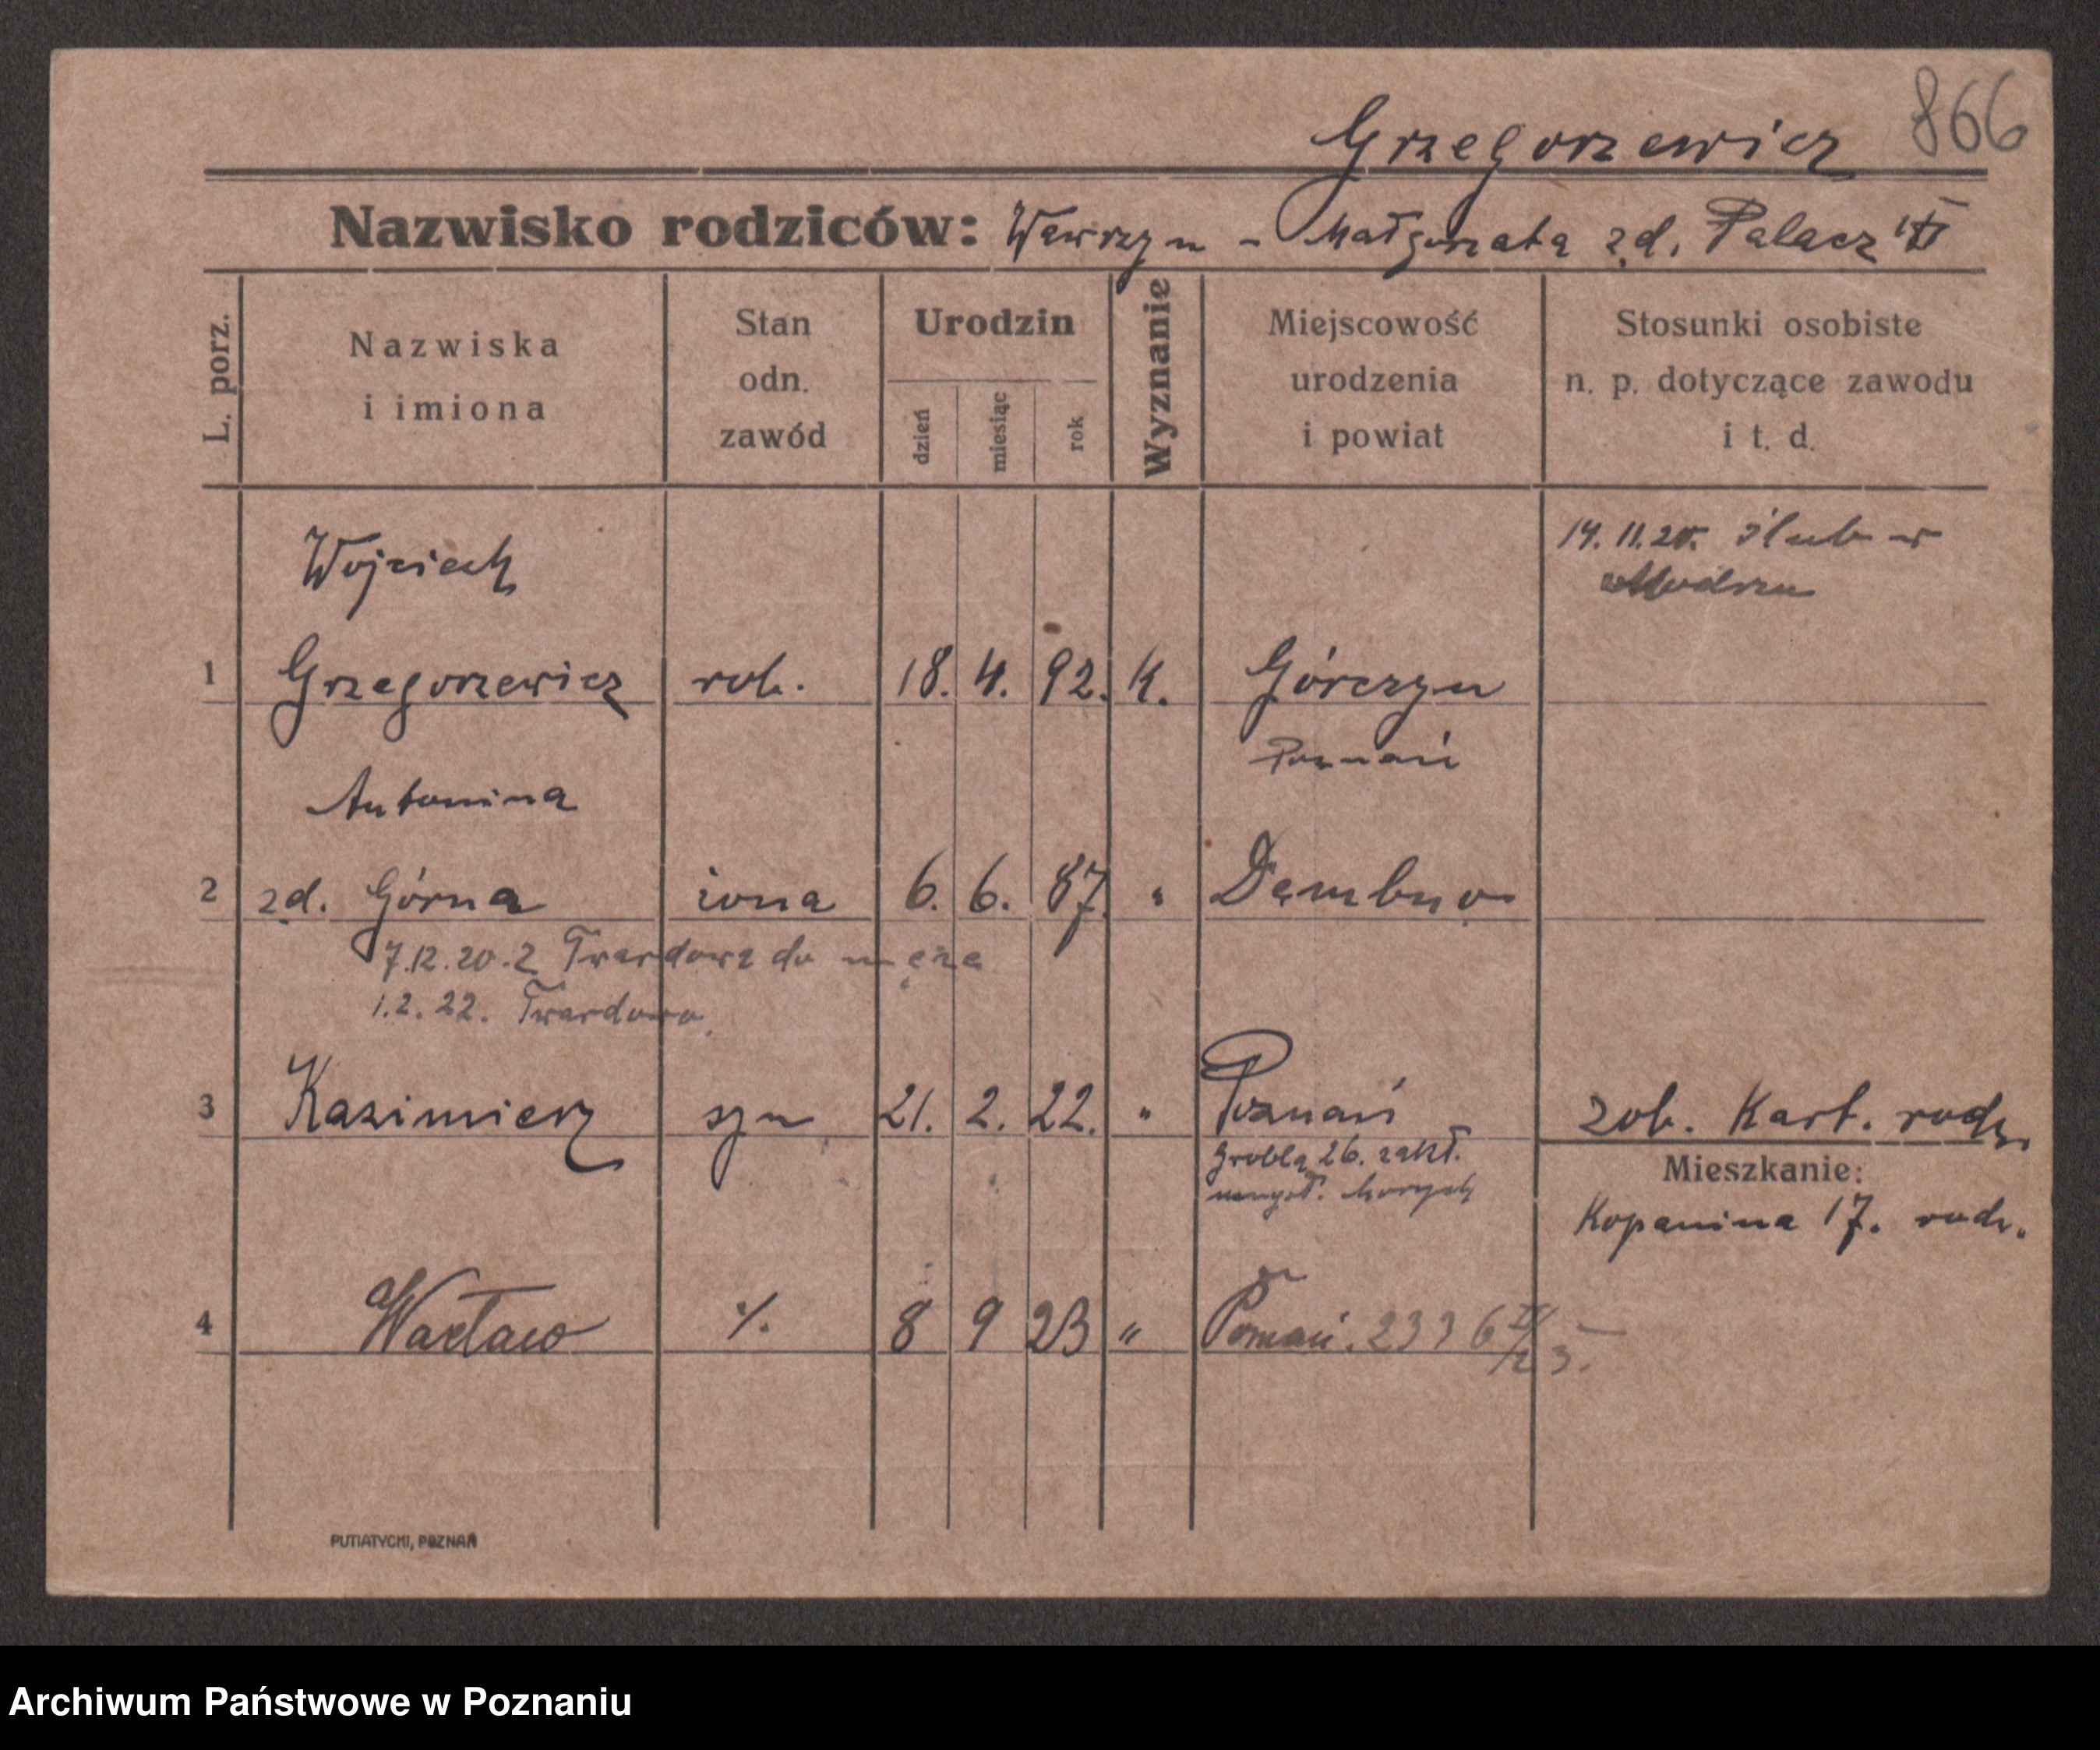 866
Grzegorzewicz
Nazwisko rodziców: Wawrzyn - Małgorzata z d. Palacz
L. porz.
Nazwiska
i imiona
Stan
odn.
zawód
Urodzin
dzień
miesiąc
rok
Wyznanie
Miejscowość
urodzenia
i powiat
Stosunki osobiste
n. p. dotyczące zawodu
i t. d.
14. 11. 20. ślub w
Modrzu
Wojciech
1 Grzegorzewicz rob. 18. 4. 92. K. Górczyn
Poznań
Antonina
2 zd. Górna żona 6. 6. 87. " Dembno
7.12.20. z Twardowa do męża
1.2.22. Twardowo
3 Kazimierz syn 21. 2. 22. " Poznań
Grobla 26. zakł.
umysł. chorych
zob. Kart. rodz.
Mieszkanie:
Kopanina 17. rodz.
4 Wacław ·/. 8 9 23 " Poznań. 2336
PUTIATYCKI, POZNAŃ
Archiwum Państwowe w Poznaniu